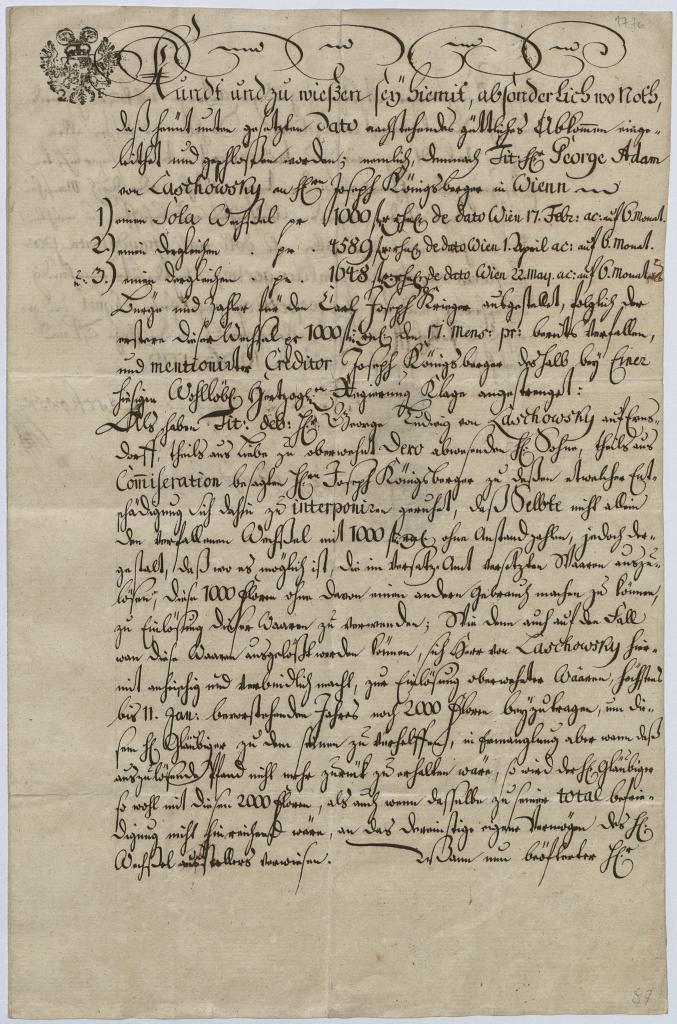 1776
Kundt und zu wießen sey hiemit, absonderlich wo Noth,
daß heünt unten gesetzten Dato nachstehendes güttliches Abkommen einge-
leithet und geschlossen worden; nemlich, demnach Tit: H: George Adam
von Laschowsky an H: Joseph Königsberger in Wienn
1) einen Sola Wechßel pr 1000 de dato Wien 17. Febr: ac: auf 6 Monat.
2.) einen dergleichen . pr . 4589 de dato Wien 1. April ac: auf 6. Monat.
3.) einen dergleichen . pr . 1648 de dato Wien 22. May. ac: auf 6. Monat
Bürge und Zahler für den Carl Joseph Krieger ausgestellet, folglich der
erstere dieser Wechsel pr 1000 den 17. Mens: pr: bereits verfallen,
und mentionirter Creditor Joseph Königsberger deshalb bey Einer
hiesigen Wohllöbl: Hertzogl: Regierung Klage angestrenget:
Als haben Tit: deb: H: George Ludwig von Laschowsky auf Erns-
dorff, theils aus Liebe zu oberwehnt Dero abwesenden H: Sohne, theils aus
Comiseration besagten H: Joseph Königsberger zu deßen etwelcher Ent-
schädigung sich dahin zu interponiren geruhet, daß Selbte nicht allein
den verfallenen Wechßel mit 1000 ohne Anstand zahlen, jedoch der-
gestalt, daß wo es möglich ist, die im Versatz-Amt versetzten Waaren auszu-
lösen, diese 1000 Floren ohne davon einen andern Gebrauch machen zu können,
zu Einlösung dieser Waaren zu verwenden; Wie denn auch auf den Fall
wan diese Waaren ausgelößt werden können, sich Herr von Laschowsky hier-
mit anheischig und verbindlich macht, zur Einlösung oberwehnter Waaren, höchstens
bis 11. Jan: bevorstehenden Jahres noch 2000 Floren beyzutragen, um die-
sem H: Gläubiger zu dem seinen zu verhelffen, in Ermanglung aber wann daß
auszulösende Pfand nicht mehr zurück zu erhalten wäre, so wird der H: Gläubiger
so wohl mit diesen 2000 Floren, als auch wenn dasselbe zu seiner total befrie-
digung nicht hinreichend wäre, an das dereinstige eigene Vermögen des H:
Wechßel ausstellers verwiesen. Wann nun beöfterter H:
87